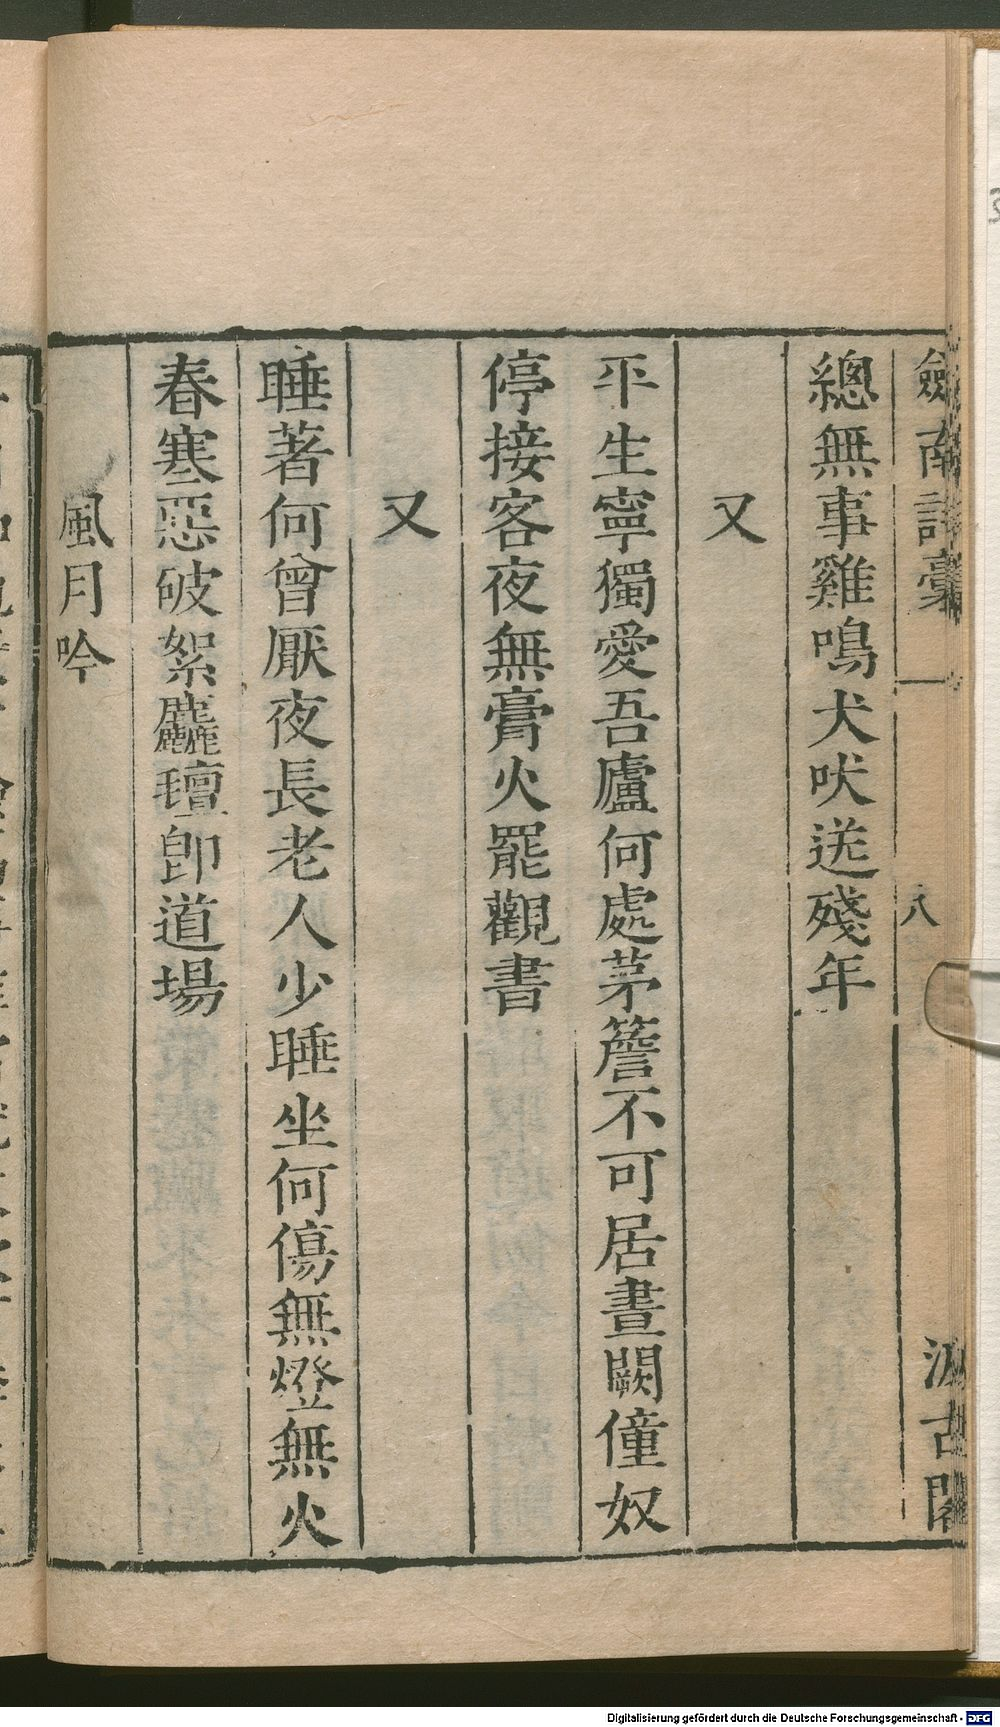 劒南詩藁 一 八 汲古閣
總無事雞鳴犬吠送殘年
又
平生寧獨愛吾廬何處茅簷不可居晝闕僮奴
停接客夜無膏火罷觀書
又
睡著何曾厭夜長老人少睡坐何傷無燈無火
春寒惡破絮麤氊即道場
風月吟
Digitalisierung gefördert durch die Deutsche Forschungsgemeinschaft - DFG